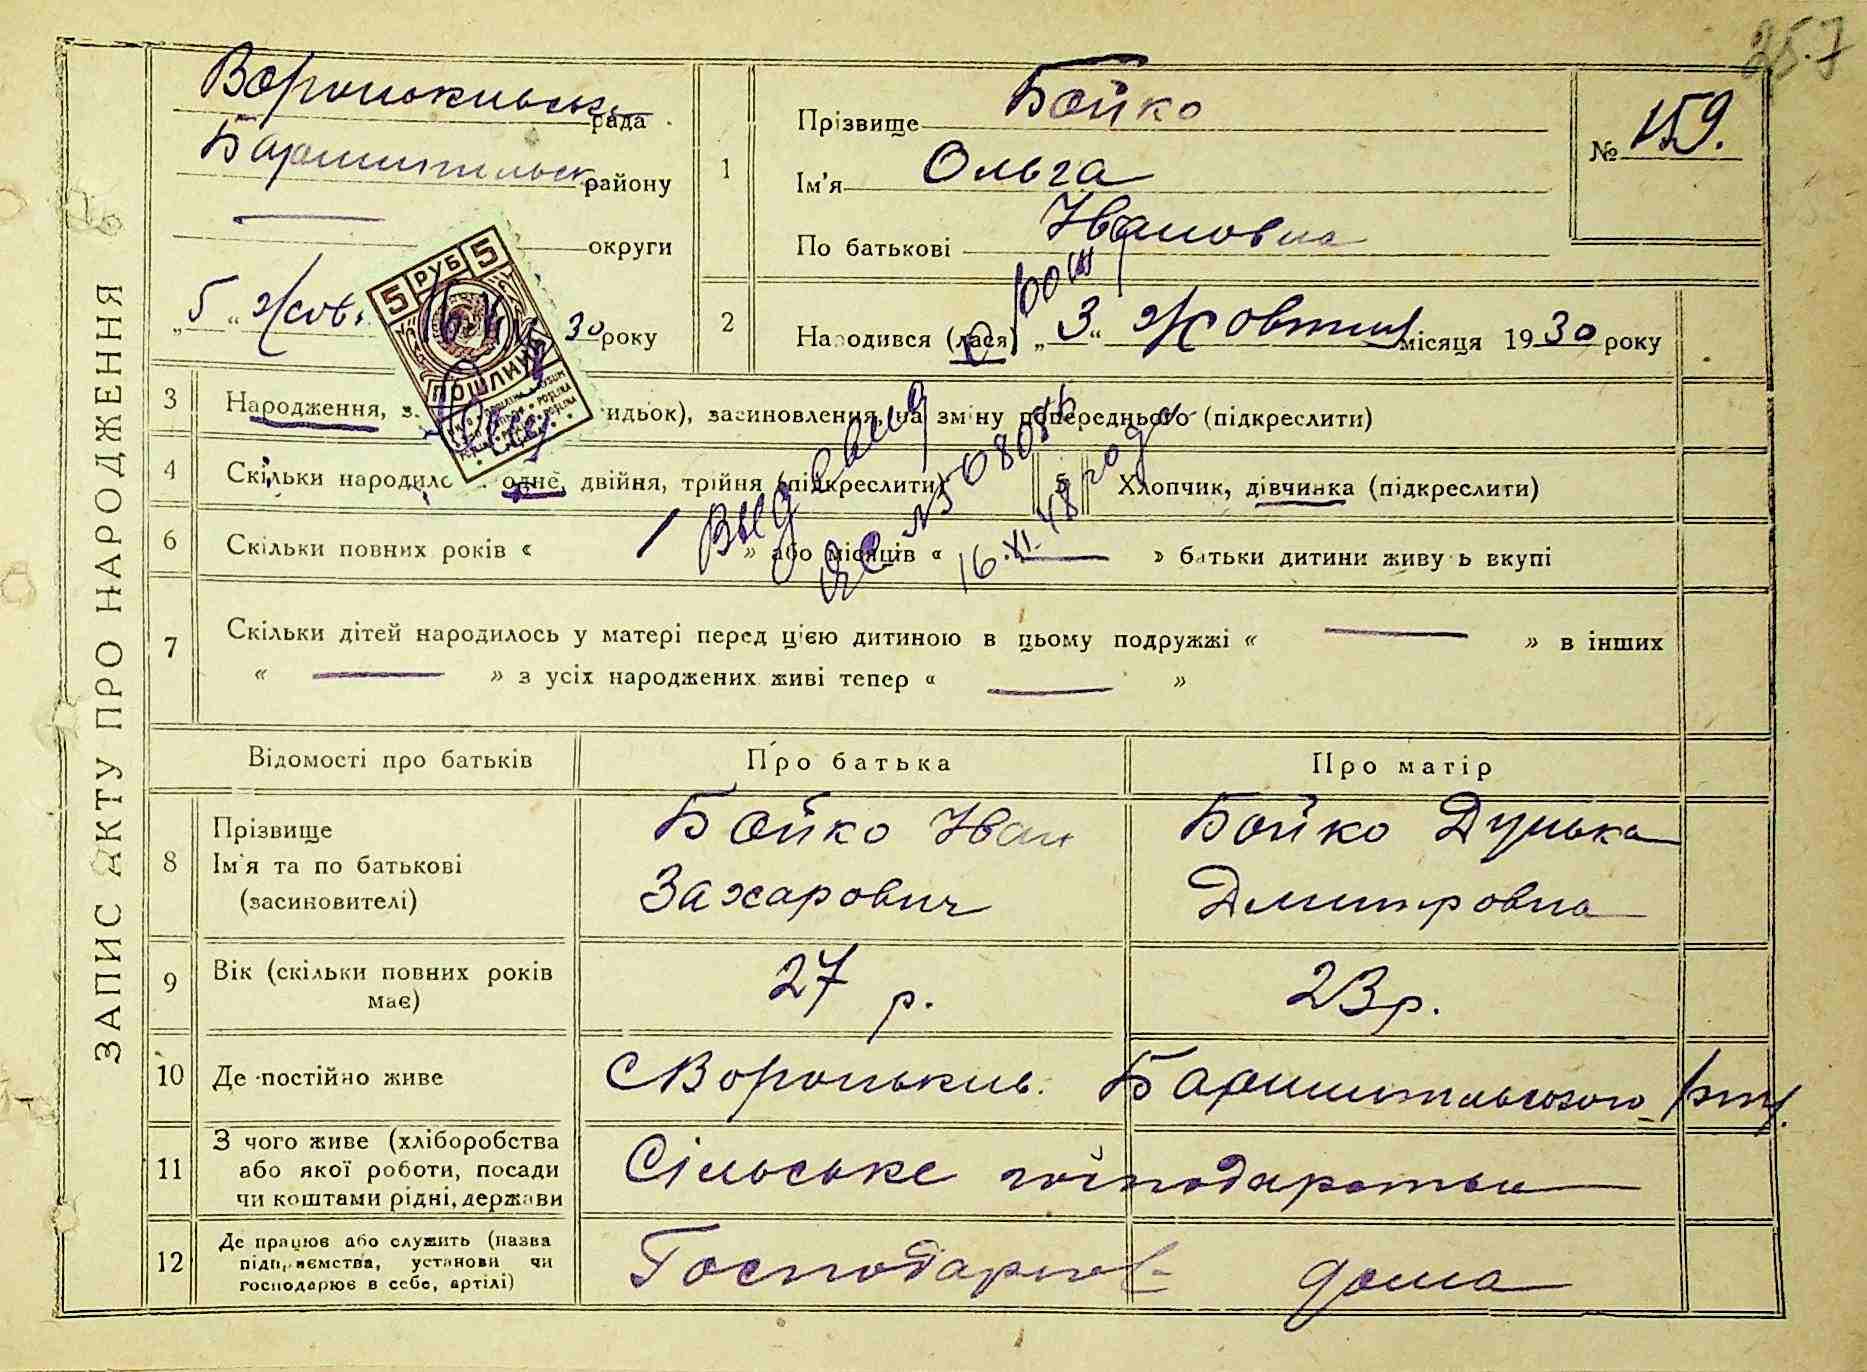 ЗАПИС АКТУ ПРО НАРОДЖЕННЯ
Вороньківська рада
Баришпільськ району
округи
„5“ Жовт. 30 року
5 РУБ 5
ПОШЛИНА
1
Прізвище Бойко
Ім'я Ольга
По батькові Ивановна
№ 159.
2
Народився (лася) „3“ Жовтня місяця 1930 року
3 Народження, з. идьок), засиновлення, на зміну попереднього (підкреслити)
4 Скільки народилс одне, двійня, трійня (підкреслити)
5 Хлопчик, дівчинка (підкреслити)
6 Скільки повних років « » або місяців « — » батьки дитини живуть вкупі
Выдан
16.XI.48 года
7 Скільки дітей народилось у матері перед цією дитиною в цьому подружжі « — » в інших
« — » з усіх народжених живі тепер « — »
Відомості про батьків Про батька Про матір
8 Прізвище
Ім'я та по батькові
(засиновителі)
Бойко Иван
Захарович
Бойко Дунька
Дмитровна
9 Вік (скільки повних років
має)
27 р. 23 р.
10 Де постійно живе
С Вороньків. Баришпільского
11 З чого живе (хліборобства
або якої роботи, посади
чи коштами рідні, держави
Сільське господарство
12 Де працює або служить (назва
підприємства, установи чи
господарює в себе, артілі)
Господарює дома